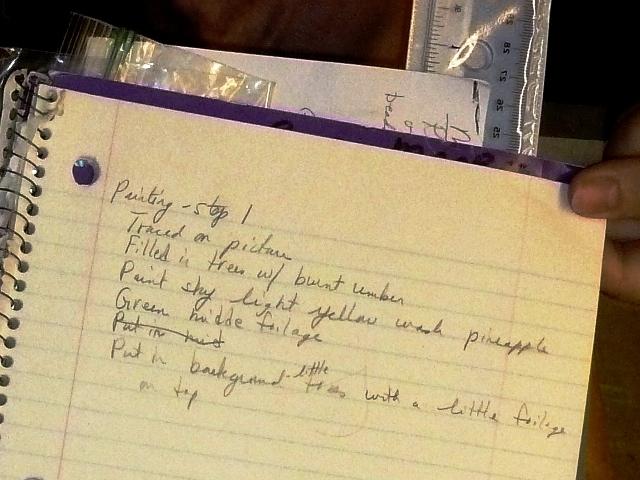 Painting - step 1
Traced on picture
Filled in trees w/ burnt umber
Paint sky light yellow wash pineapple
Green middle foliage
Put in
Put in background little trees with a little foliage
on top
28
27
26
25